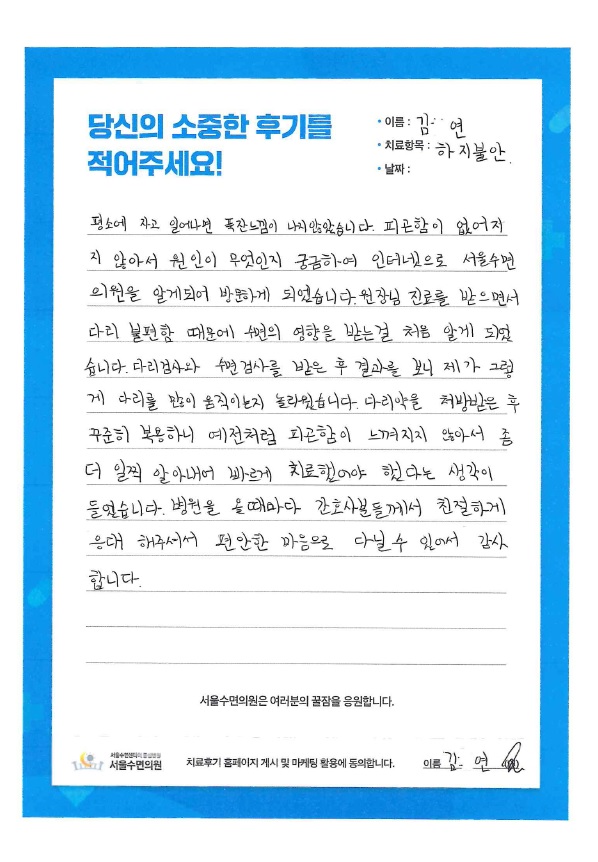 당신의 소중한 후기를
적어주세요!
• 이름 : 김 연
• 치료항목 : 하지불안
• 날짜 :
평소에 자고 일어나면 푹잔느낌이 나지않았습니다. 피곤함이 없어지
지 않아서 원인이 무엇인지 궁금하여 인터넷으로 서울수면
의원을 알게되어 방문하게 되었습니다. 원장님 진료를 받으면서
다리 불편함 때문에 수면의 영향을 받는걸 처음 알게 되었
습니다. 다리검사와 수면검사를 받은 후 결과를 보니 제가 그렇
게 다리를 많이 움직이는지 놀라웠습니다. 다리약을 처방받은 후
꾸준히 복용하니 예전처럼 피곤함이 느껴지지 않아서 좀
더 일찍 알아내어 빠르게 치료했어야 했다는 생각이
들었습니다. 병원을 올때마다 간호사분들께서 친절하게
응대 해주셔서 편안한 마음으로 다닐 수 있어서 감사
합니다.
서울수면의원은 여러분의 꿀잠을 응원합니다.
서울수면센터의 중심병원
서울수면의원 치료후기 홈페이지 게시 및 마케팅 활용에 동의합니다. 이름 김 연